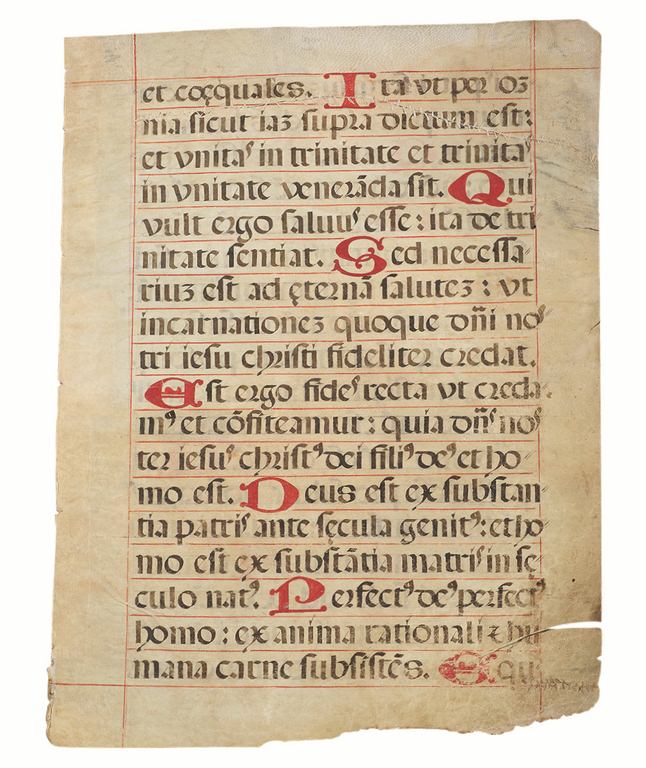 et coęquales. Ita vt per oꝫ
nia sicut iaꝫ supra dictum est:
et vnitaˢ in trinitate et trinitaˢ
in vnitate venerāda sit. Qui
vult ergo saluuˢ esse: ita de tri
nitate sentiat. Sed necessa-
riuꝫ est ad ęternā saluteꝫ: vt
incarnationeꝫ quoque dn̄i noˢ
tri iesu christi fideliter credat.
Est ergo fideˢ recta vt creda-
mꝰ et cōfiteamur: quia dn̄ˢ noˢ
ter iesuˢ christꝰ dei filiꝰ deꝰ et ho-
mo est. Deus est ex substan-
tia patriˢ ante sęcula genitꝰ: et ho-
mo est ex substātia matriˢ in sę
culo natꝰ. Perfectꝰ deꝰ perfectꝰ
homo: ex anima rationali ⁊ hu
mana carne subsistēs. Equ